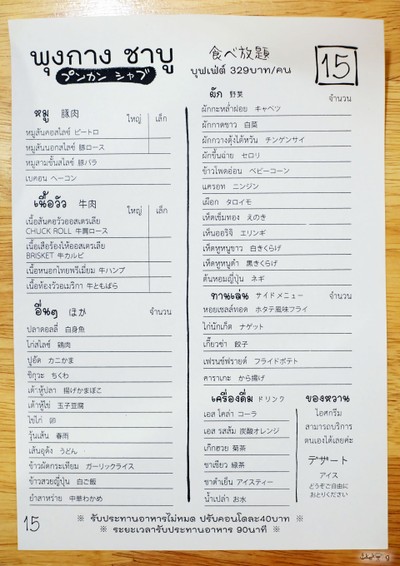 พุงกาง ชาบู
プンカン シャブ
食べ放題
บุฟเฟ่ต์ 329บาท/คน
15
หมู 豚肉 ใหญ่ เล็ก
หมูสันคอสไลซ์ ピートロ
หมูสันนอกสไลซ์ 豚ロース
หมูสามชั้นสไลซ์ 豚バラ
เบคอน ベーコン
เนื้อวัว 牛肉 ใหญ่ เล็ก
เนื้อสันคอวัวออสเตรเลีย
CHUCK ROLL 牛肩ロース
เนื้อเสือร้องไห้ออสเตรเลีย
BRISKET 牛カルビ
เนื้อหนอกไทยพรีเมี่ยม 牛ハンプ
เนื้อท้องวัวอเมริกา 牛ともばら
อื่นๆ ほか จำนวน
ปลาดอลลี่ 白身魚
ไก่สไลซ์ 鶏肉
ปูอัด カニかま
ชิกุวะ ちくわ
เต้าหู้ปลา 揚げかまぼこ
เต้าหู้ไข่ 玉子豆腐
ไข่ไก่ 卵
วุ้นเส้น 春雨
เส้นอุด้ง うどん
ข้าวผัดกระเทียม ガーリックライス
ข้าวสวยญี่ปุ่น 白ご飯
ยำสาหร่าย 中華わかめ
ผัก 野菜 จำนวน
ผักกะหล่ำฝอย キャベツ
ผักกาดขาว 白菜
ผักกวางตุ้งไต้หวัน チンゲンサイ
ผักขึ้นฉ่าย セロリ
ข้าวโพดอ่อน ベビーコーン
แครอท ニンジン
เผือก タロイモ
เห็ดเข็มทอง えのき
เห็นออริจิ エリンギ
เห็ดหูหนูขาว 白きくらげ
เห็ดหูหนูดำ 黒きくらげ
ต้นหอมญี่ปุ่น ネギ
ทานเล่น サイドメニュー จำนวน
หอยเชลล์ทอด ホタテ風味フライ
ไก่นักเก็ต ナゲット
เกี๊ยวซ่า 餃子
เฟรนช์ฟรายด์ フライドポテト
คาราเกะ から揚げ
เครื่องดื่ม ドリンク
เอส โคล่า コーラ
เอส รสส้ม 炭酸オレンジ
เก๊กฮวย 菊茶
ชาเขียว 緑茶
ชาดำเย็น アイスティー
น้ำเปล่า お水
ของหวาน
ไอศกรีม
สามารถบริการ
ตนเองได้เลยค่ะ
デザート
アイス
どうぞご自由に
おとりください
15
※ รับประทานอาหารไม่หมด ปรับคอนโดละ40บาท ※
※ ระยะเวลารับประทานอาหาร 90นาที ※